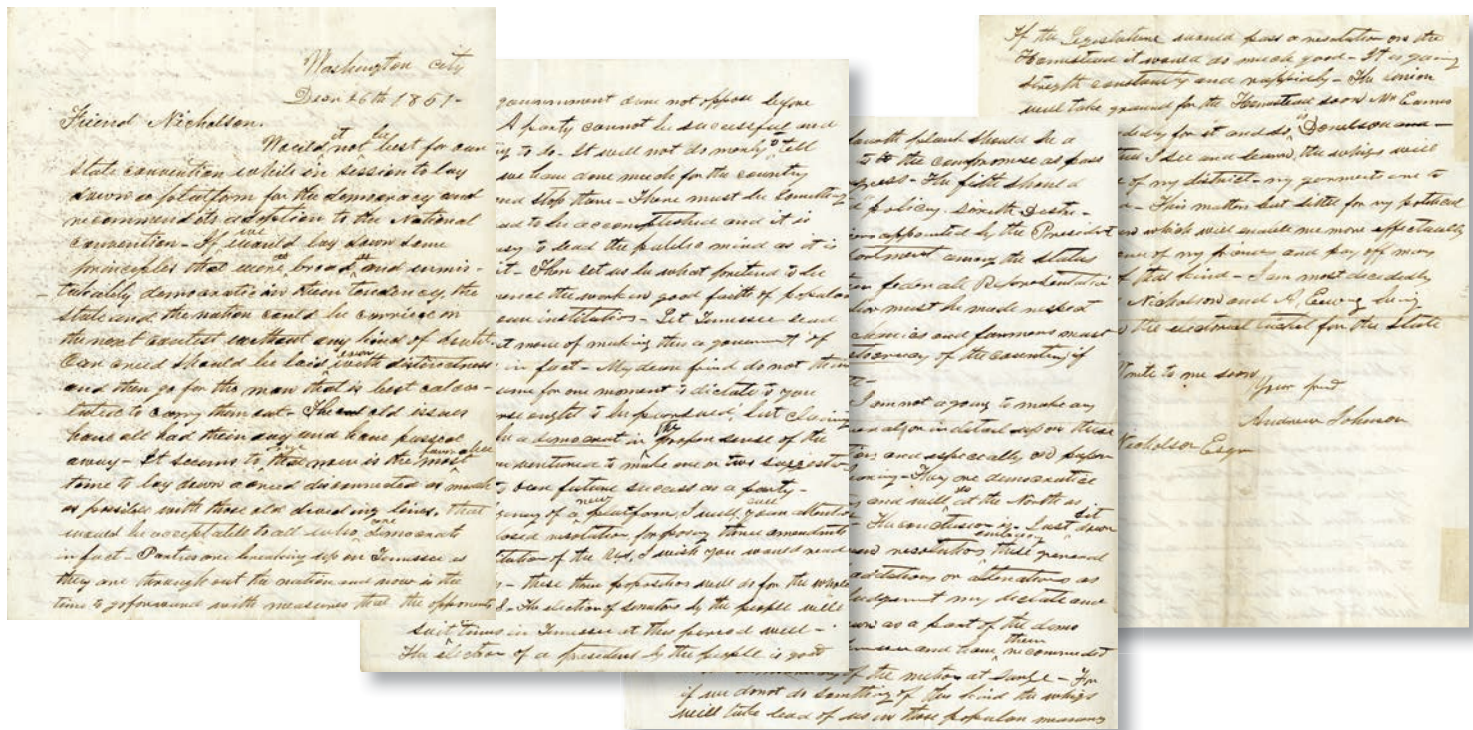 Washington City
Decr 26th 1851-
Friend Nicholson.
Would it not be best for our
State convention while in session to lay
down a platform for the democracy and
recommend its adoption to the National
convention- If we would lay down some
principles that were broad and unmis-
takably democratic in their tendency, the
state and the nation could be carried in
the next contest without any kind of doubt.
Our creed should be laid down with distinctness
and then go for the man that is best calcu-
lated to carry them out- The old issues
have all had their day and have passed
away- It seems to that now is the most favorable
time to lay down a creed disconnected as much
as possible with those old dividing lines, that
would be acceptable to all who are democrats
in fact- Parties are breaking up in Tennessee as
they are through out the nation and now is the
time to go forward with measures that the opponents
government dare not oppose before
A party cannot be successful and
to do- It will not do merely to tell
we have done much for the country
and stop there- There must be someth-
to be accomplished and it is
to lead the public mind as it is
it- Then let us be what pretend to be
the work in good faith of popular
institutions- Let Tennessee lead
move of making this a government of
in fact- My dear friend do not think
for one moment to dictate to you
ought to be pursued, but
a democrat in the proper sense of the
to make one or two suggesti-
our future success as a party-
of a new platform, I will your attention
resolution proposing three amendments
of the U.S, I wish you would read
- these three propositions will do for the whole
- The election of senators by the people will
suit times in Tennessee at this period well-
The election of a president by the people is good
fourth plank should be a
to the compromise as pass
The fifth should
policy. Sixth Distr-
appointed by the President
among the states
federal Representatio
must be made respect
mechanics and farmers must
of the country if
I am not a going to make any
in detail upon these
and especially
They are democratic
and will do at the North as
The conclusion is- Just sit down
resolutions embracing these general
additions or alterations as
judgment may dictate and
as a part of the demo
and have them recommended
of the nation at large- For
if we do not do something of this kind the whigs
will take lead of us in these popular measures
If the Legislature would pass a resolution on the
Homestead it would do much good- It is gaining
strength constantly and rappidly- The union
will take ground for the Homestead soon Mr Eames
for it and so is Donelson and-
I see and learn, the whigs will
of my district- my garments are to
This matter best little for my political
which will enable me more effectually
of my friends and pay off many
of that kind- I am most decidedly
Nicholson and A, Ewing being
the electoral ticket for the State
Write to me soon
Your friend
Andrew Johnson
Nicholson Esqr